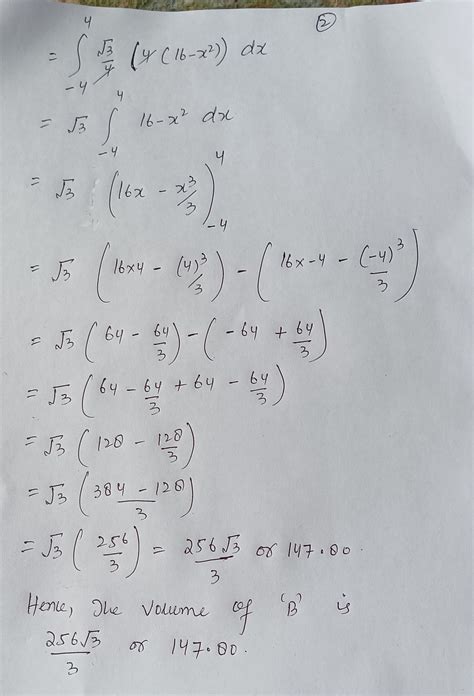 ②
= ∫_{-4}^{4} √3/4 (4(16-x²)) dx
= √3 ∫_{-4}^{4} 16-x² dx
= √3 (16x - x³/3)_{-4}^{4}
= √3 (16×4 - (4)³/3) - (16×-4 - (-4)³/3)
= √3 (64 - 64/3) - (-64 + 64/3)
= √3 (64 - 64/3 + 64 - 64/3)
= √3 (128 - 128/3)
= √3 (384 - 128/3)
= √3 (256/3) = 256√3/3 or 147.80.
Hence, The volume of 'B' is
256√3/3 or 147.80.